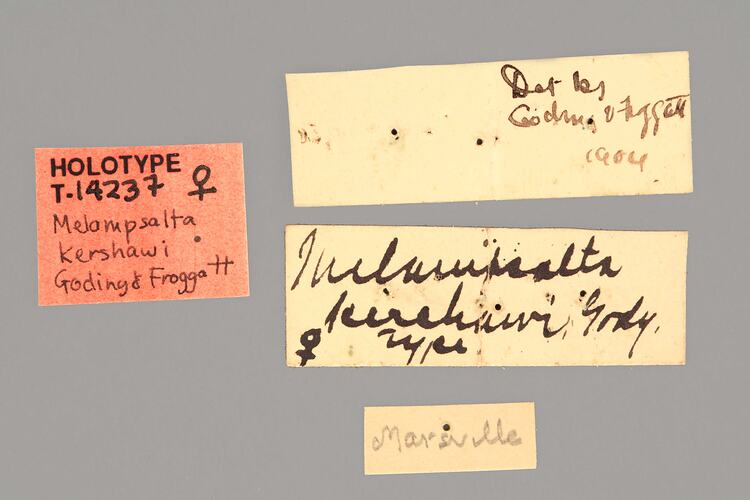 HOLOTYPE
T-14237 ♀
Melampsalta
Kershawi
Goding & Froggatt
Det by
Goding & Froggatt
1904
Melampsalta
kershawi, Gody.
♀ Type
Marsville